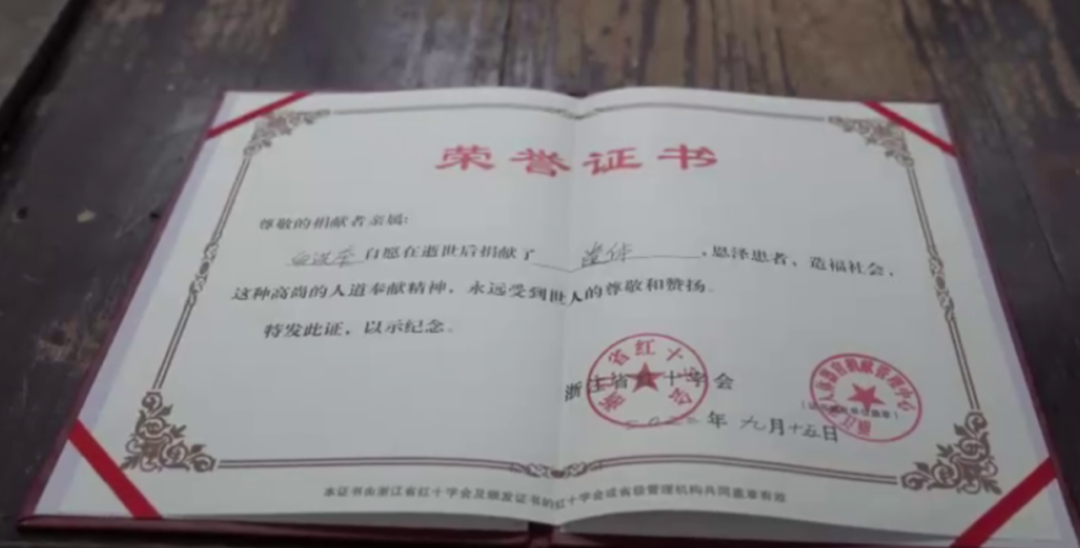 荣誉证书
尊敬的捐献者亲属:
自愿在逝世后捐献了 遗体 ,恩泽患者、造福社会,
这种高尚的人道奉献精神,永远受到世人的尊敬和赞扬。
特发此证,以示纪念。
浙江省红十字会
浙江省红十字会
年九月十五日
本证书由浙江省红十字会及颁发证书的红十字会或省级管理机构共同盖章有效